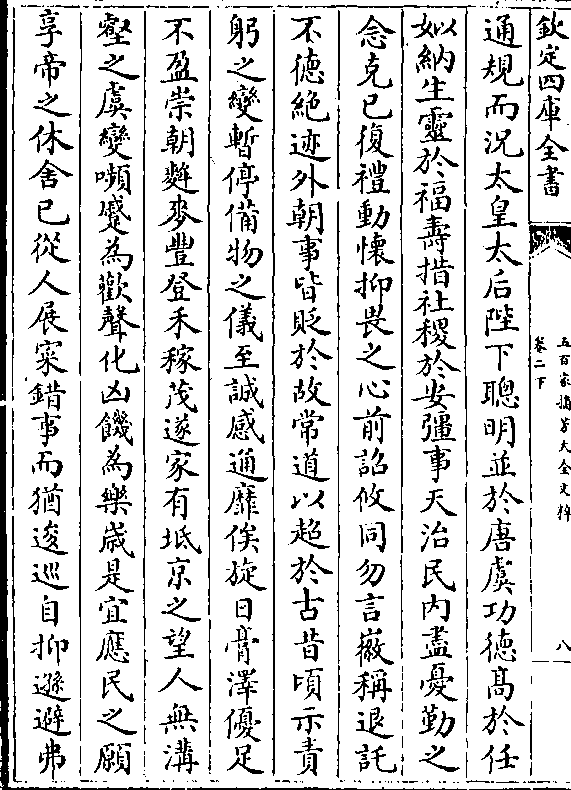 欽定四庫全書
五百家播芳大全文粹
卷二下
八
通規而況太皇太后陛下聰明並於唐虞功德髙於任
姒納生靈於福壽措社稷於安彊事天治民内盡憂勤之
念克已復禮動懐抑畏之心前詔攸同勿言徽稱退託
不德絶迹外朝事皆貶於故常道以超於古昔頃示責
躬之變暫停備物之儀至誠感通靡俟旋日膏澤優足
不盈崇朝麰麥豐登禾稼茂遂家有坻京之望人無溝
壑之虞變嚬蹙為歡聲化凶饑為樂歳是宜應民之願
享帝之休舍已從人展寀錯事而猶逡巡自抑遜避弗